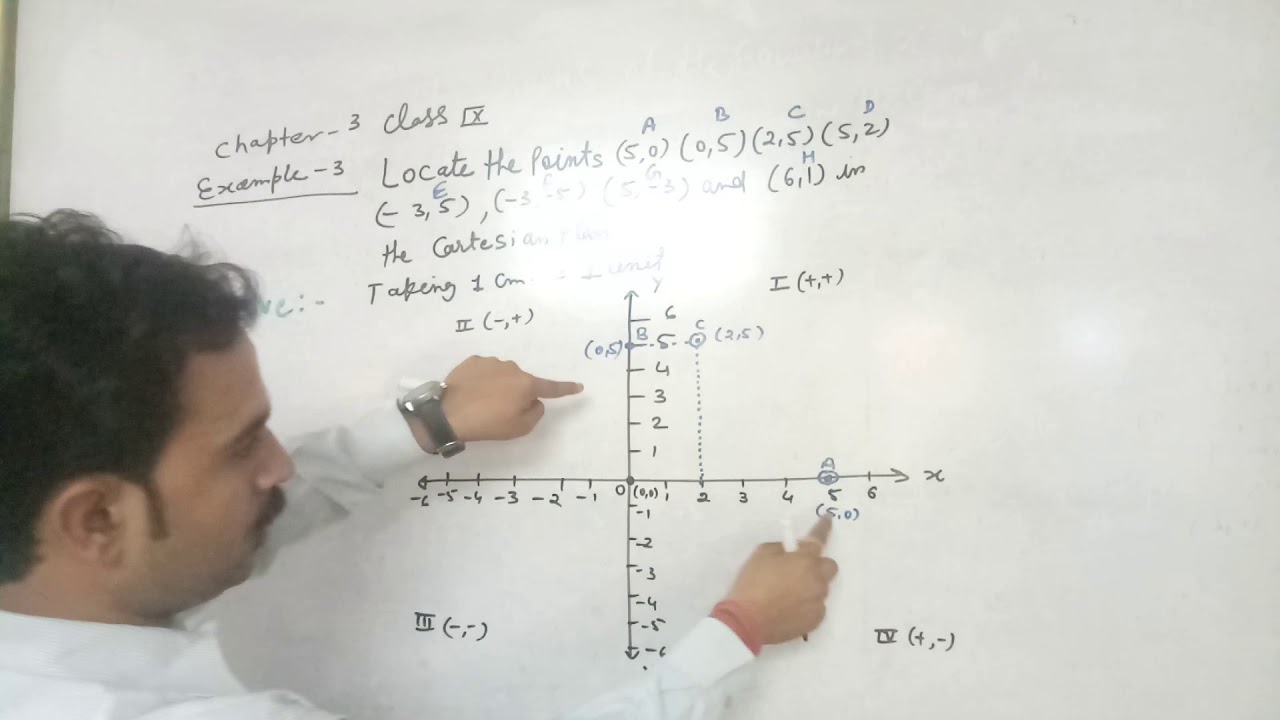 Chapter-3 Class IX
Example-3 Locate the Points (5,0) (0,5) (2,5) (5,2)
A B C D
(-3,5), (-3,-5) (5,-3) and (6,1) in
E F G H
the Cartesian Plan
Taking 1 Cm = 1 unit
ve:-
I (+,+)
II (-,+)
Y
6
(0,5) B 5 C (2,5)
4
3
2
1
A
-6 -5 -4 -3 -2 -1 O (0,0) 1 2 3 4 5 6 x
-1 (5,0)
-2
-3
-4
-5
-6
III (-,-)
IV (+,-)